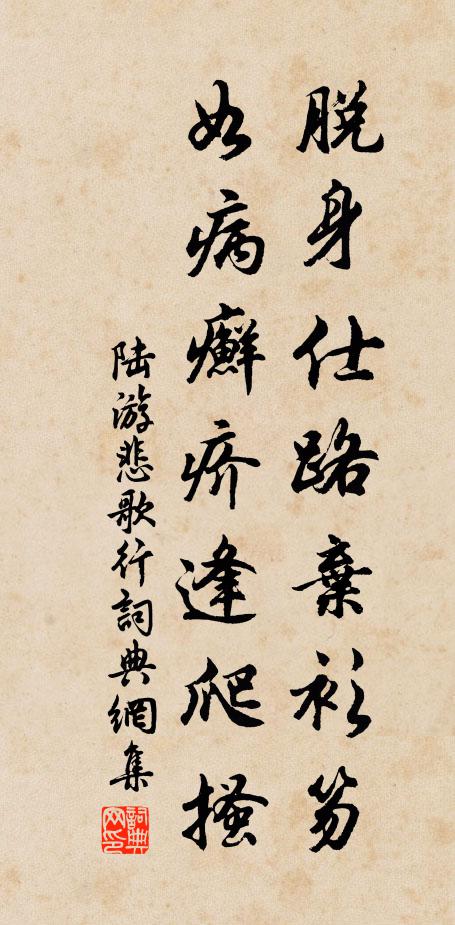 脱身仕路棄衫笏
如病癬疥逢爬搔
陆游悲歌行詞典網集
詞典網印